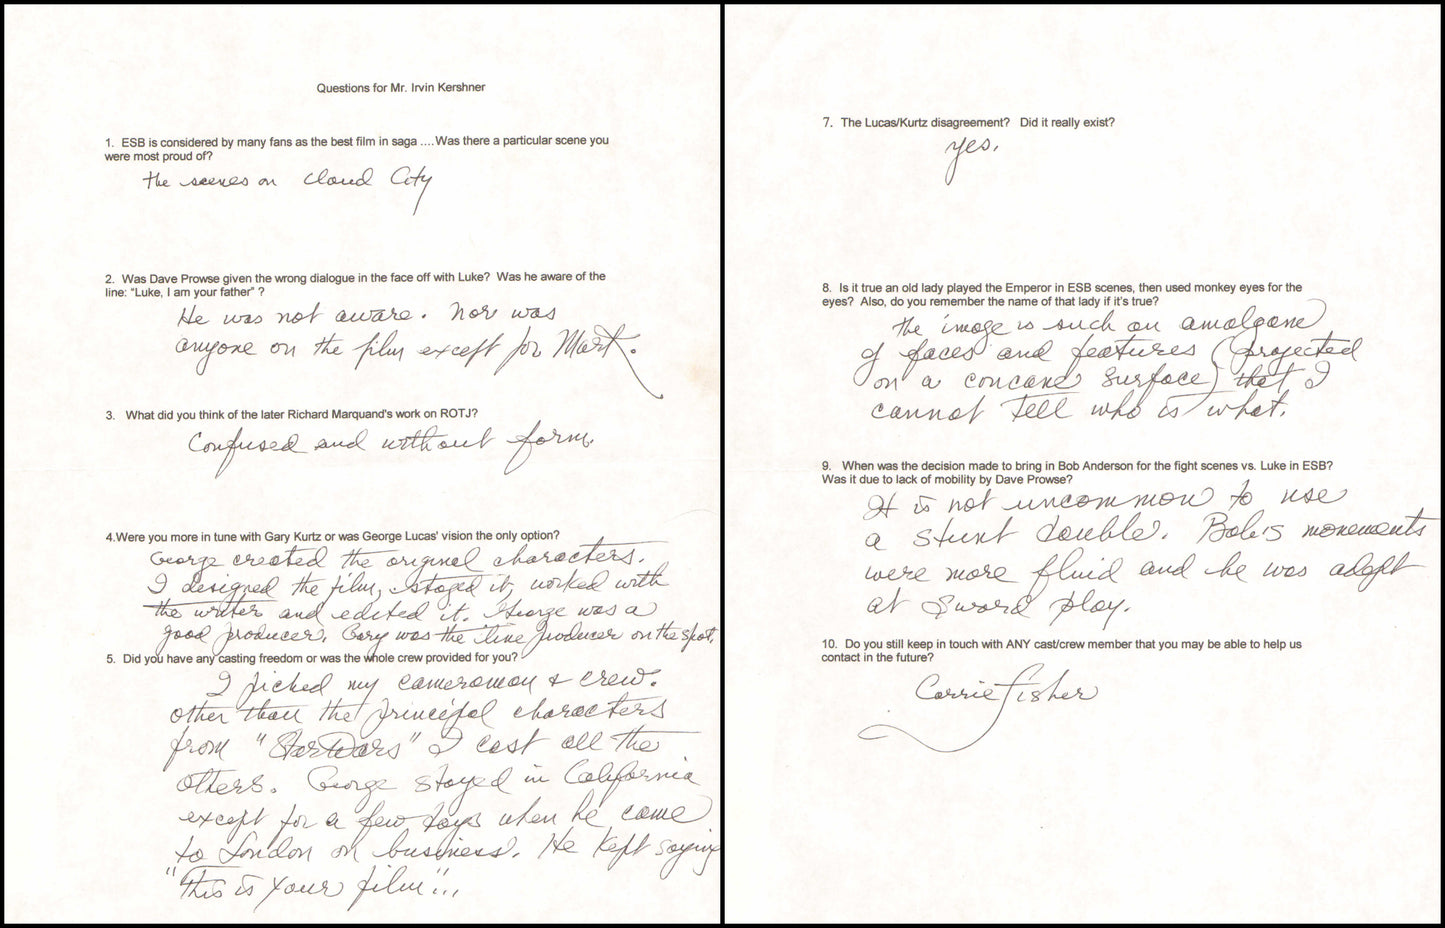 Questions for Mr. Irvin Kershner
1. ESB is considered by many fans as the best film in saga ....Was there a particular scene you
were most proud of?
the scenes on Cloud City
2. Was Dave Prowse given the wrong dialogue in the face off with Luke? Was he aware of the
line: "Luke, I am your father" ?
He was not aware. Nor was
anyone on the film except for Mark.
3. What did you think of the later Richard Marquand's work on ROTJ?
Confused and without form.
4.Were you more in tune with Gary Kurtz or was George Lucas' vision the only option?
George created the original characters.
I designed the film, staged it, worked with
the writer and edited it. George was a
good producer. Gary was the line producer on the spot.
5. Did you have any casting freedom or was the whole crew provided for you?
I picked my cameraman & crew.
Other than the principal characters
from "Star Wars" I cast all the
others. George stayed in California
except for a few days when he came
to London on business. He kept saying
"this is your film"...
7. The Lucas/Kurtz disagreement? Did it really exist?
yes.
8. Is it true an old lady played the Emperor in ESB scenes, then used monkey eyes for the
eyes? Also, do you remember the name of that lady if it's true?
The image is such an amalgam
of faces and features (projected
on a concave surface) that I
cannot tell who is what.
9. When was the decision made to bring in Bob Anderson for the fight scenes vs. Luke in ESB?
Was it due to lack of mobility by Dave Prowse?
It is not uncommon to use
a stunt double. Bob's movements
were more fluid and he was adept
at sword play.
10. Do you still keep in touch with ANY cast/crew member that you may be able to help us
contact in the future?
Carrie Fisher